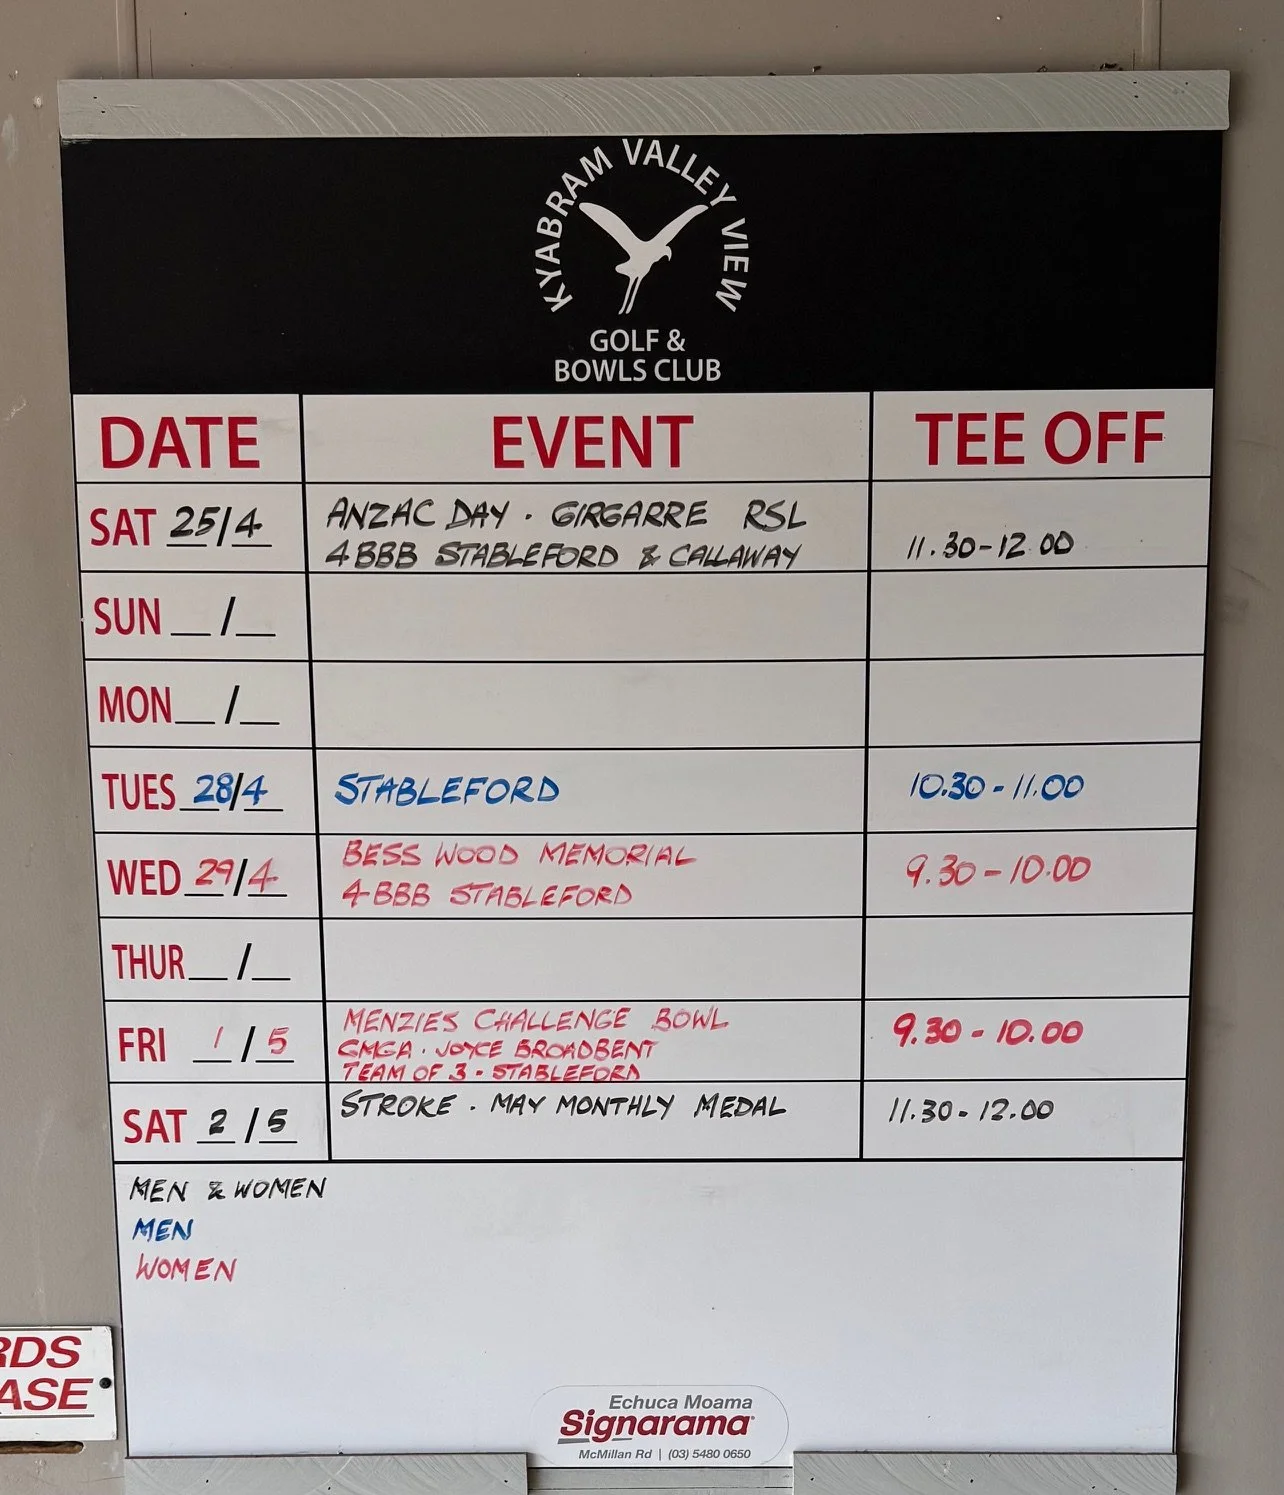 KYABRAM VALLEY VIEW
GOLF &
BOWLS CLUB
DATE EVENT TEE OFF
SAT 25/4 ANZAC DAY · GIRGARRE RSL
4BBB STABLEFORD & CALLAWAY 11.30-12.00
SUN __/__
MON __/__
TUES 28/4 STABLEFORD 10.30 - 11.00
WED 29/4 BESS WOOD MEMORIAL
4BBB STABLEFORD 9.30 - 10.00
THUR __/__
FRI 1/5 MENZIES CHALLENGE BOWL 9.30 - 10.00
GMGA · JOYCE BROADBENT
TEAM OF 3 - STABLEFORD
SAT 2/5 STROKE · MAY MONTHLY MEDAL 11.30 - 12.00
MEN & WOMEN
MEN
WOMEN
RDS
ASE
Echuca Moama
Signarama
McMillan Rd | (03) 5480 0650